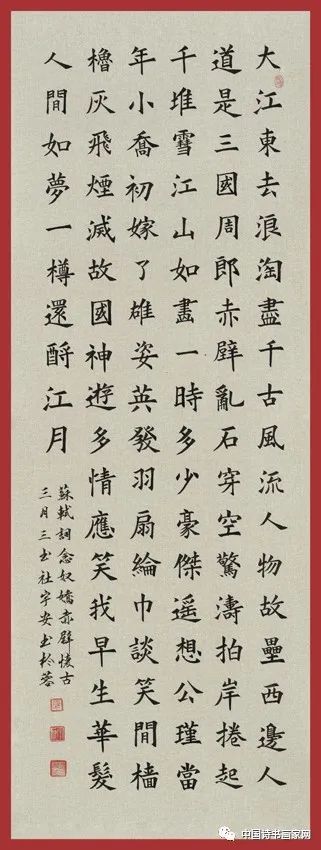 大江東去浪淘盡千古風流人物故壘西邊人
道是三國周郎赤壁亂石穿空驚濤拍岸捲起
千堆雪江山如畫一時多少豪傑遥想公瑾當
年小喬初嫁了雄姿英發羽扇綸巾談笑間檣
櫓灰飛煙滅故國神遊多情應笑我早生華髮
人間如夢一樽還酹江月
蘇軾詞念奴嬌赤壁懷古
三月三书社宇安书於蓉
中国诗书画家网